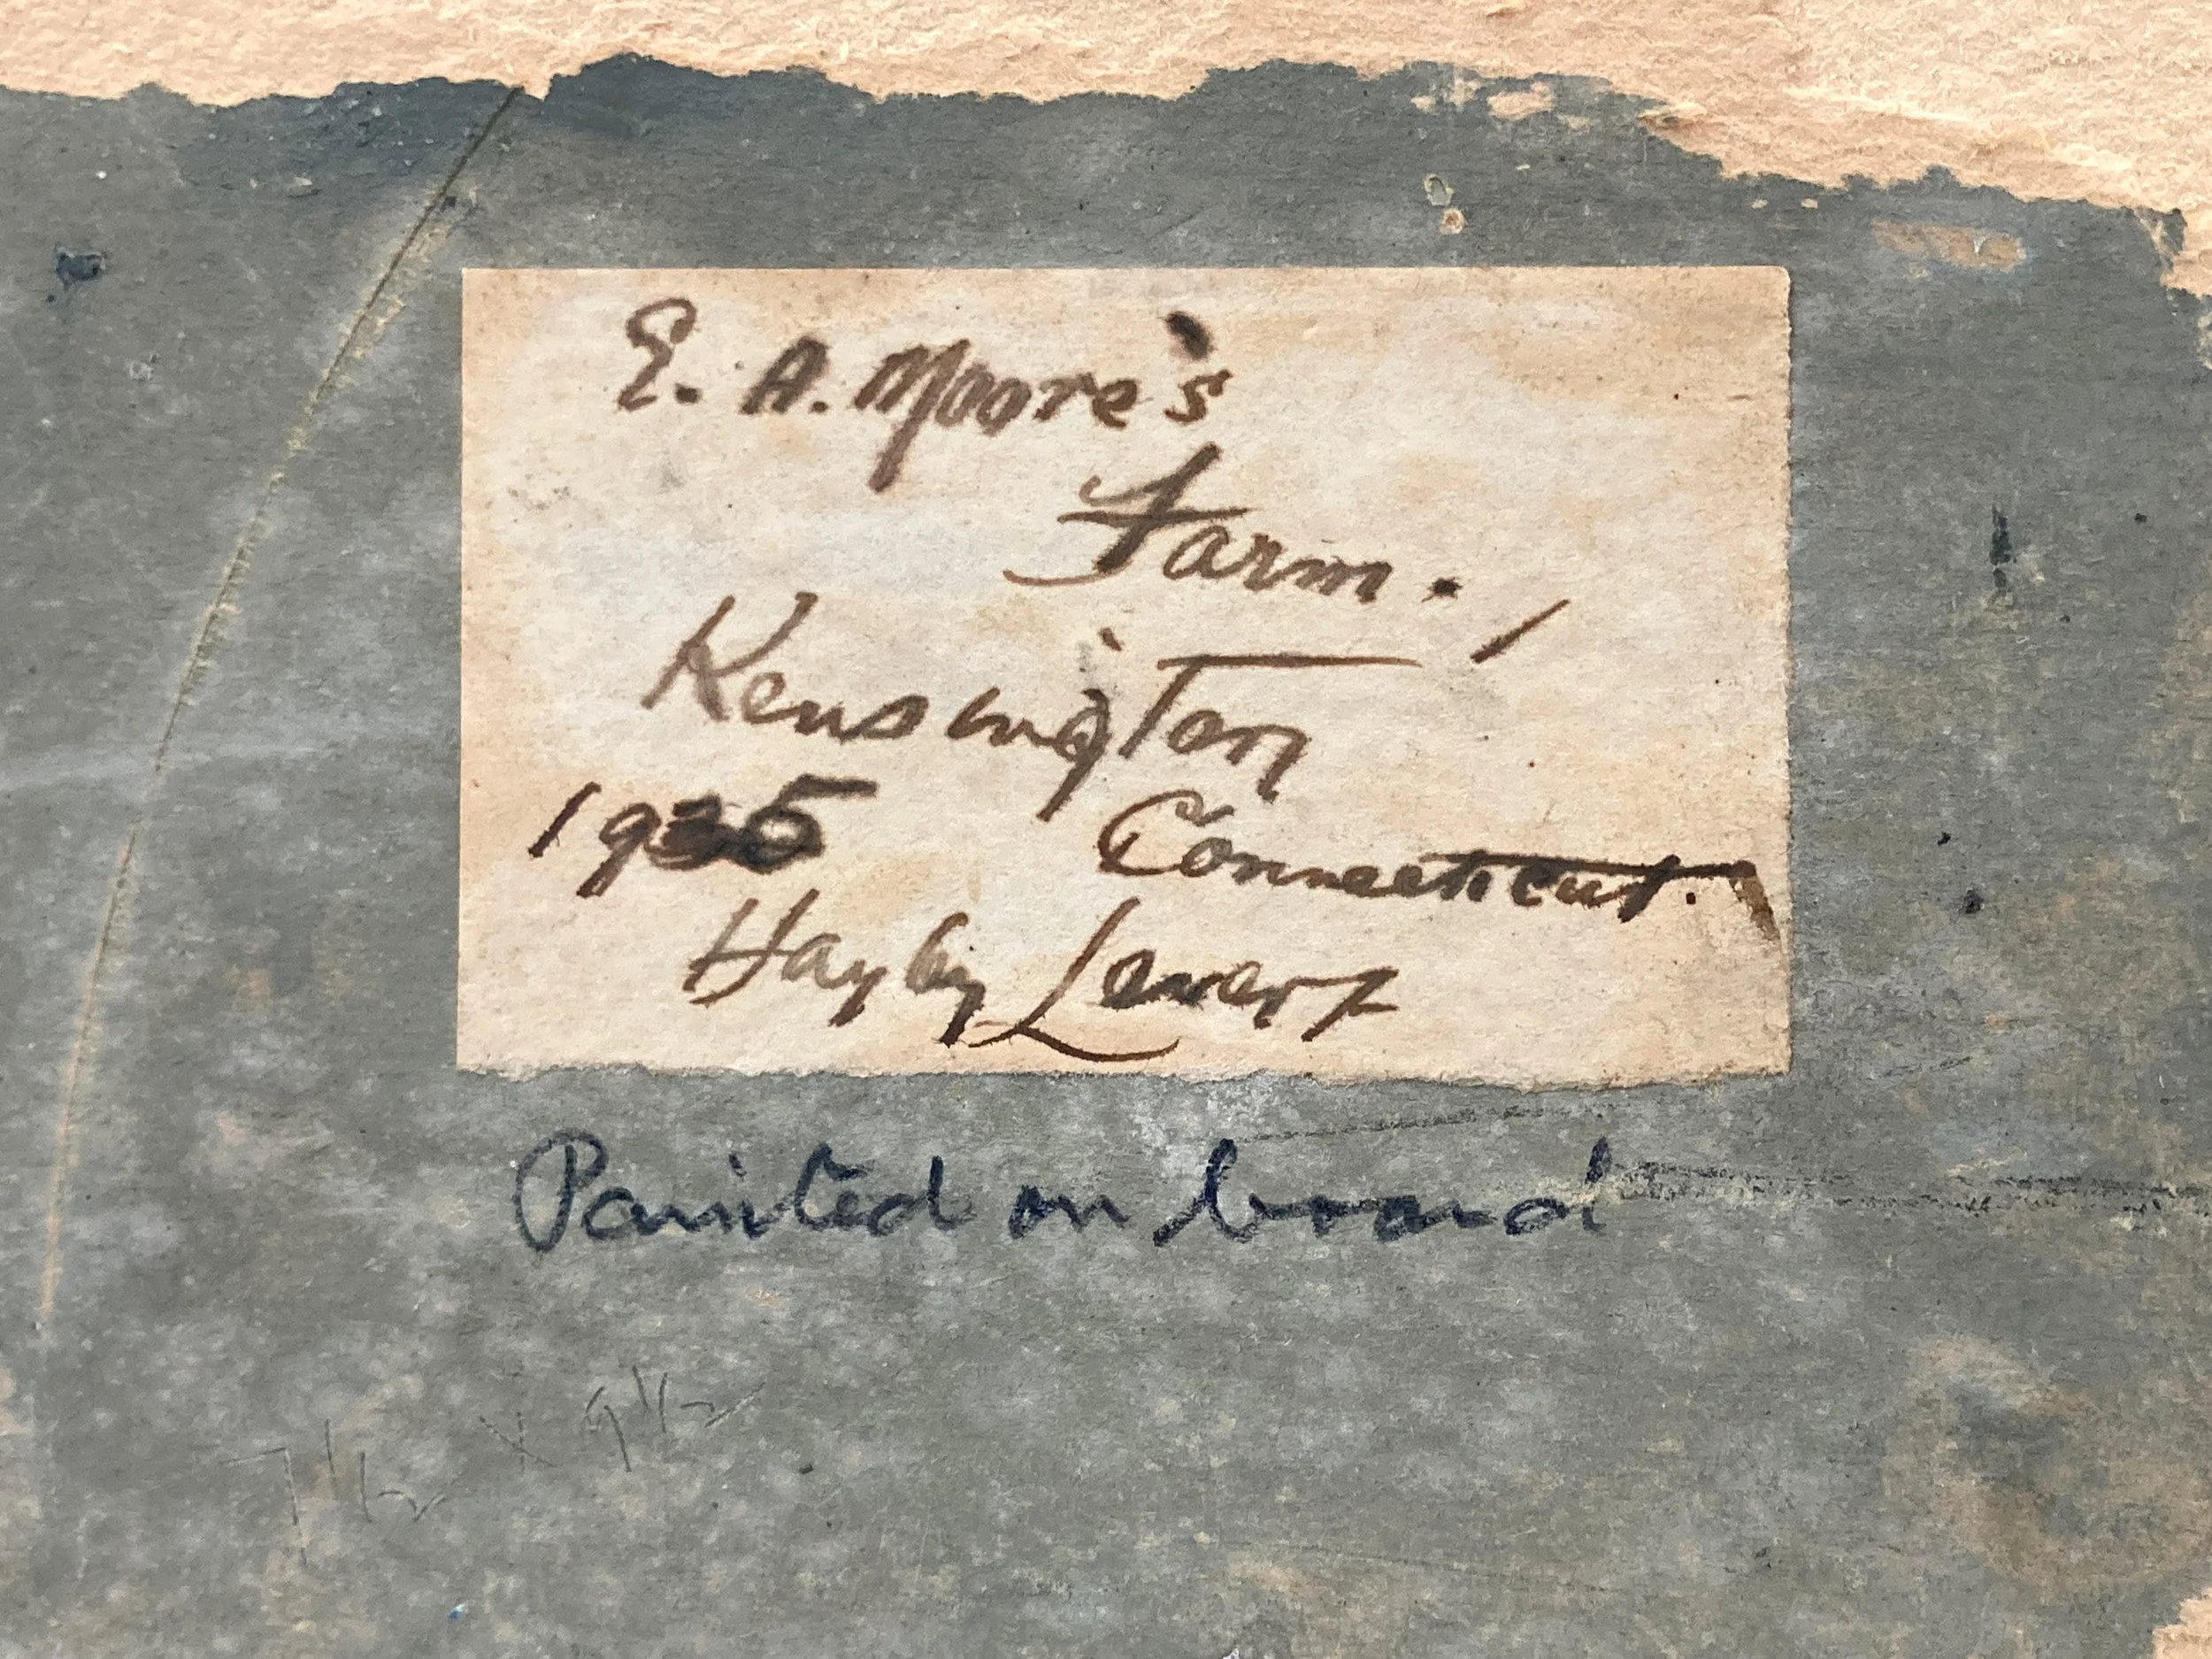 E. A. Moore's
Farm.
Kensington,
1935 Connecticut.
Hayley Lever
Painted on board
7 1/2 x 9 1/2